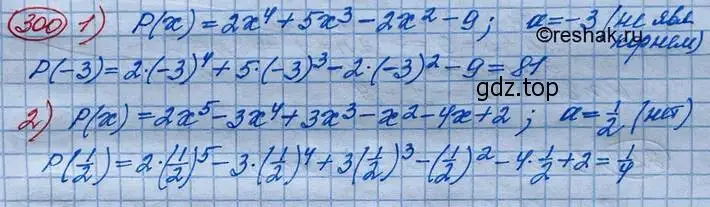 300 1) P(x) = 2x⁴ + 5x³ - 2x² - 9; a = -3 (не явл
©reshak.ru
корнем)
P(-3) = 2·(-3)⁴ + 5·(-3)³ - 2·(-3)² - 9 = 81
gdz.top
2) P(x) = 2x⁵ - 3x⁴ + 3x³ - x² - 4x + 2; a = 1/2 (нет)
P(1/2) = 2·(1/2)⁵ - 3·(1/2)⁴ + 3(1/2)³ - (1/2)² - 4·1/2 + 2 = 1/4